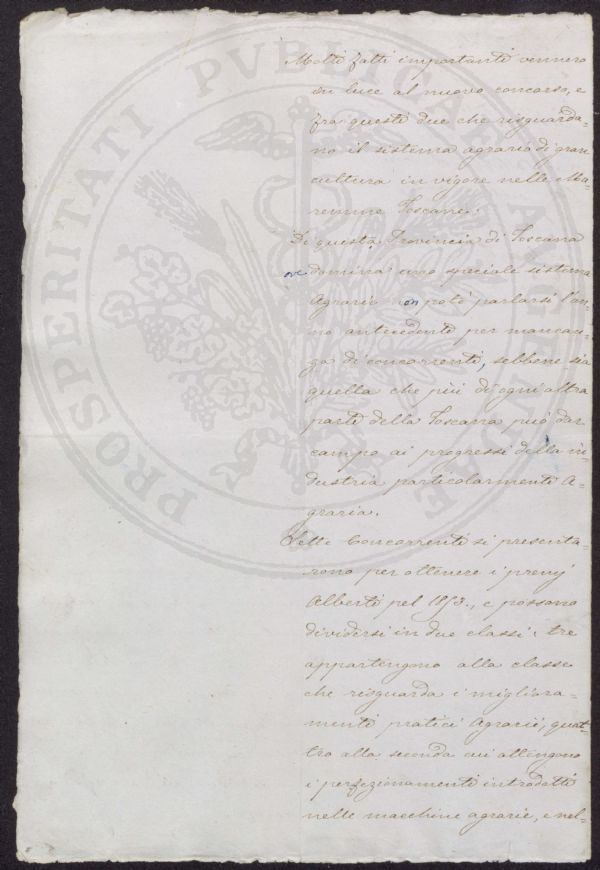 PROSPERITATI PUBLICAE AUGENDAE
Molti fatti importanti vennero
in luce al nuovo concorso, e
fra questi due che risguarda-
no il sistema agrario di gran
cultura in vigore nelle Ma-
remme Toscane.
Di questa Provincia di Toscana
ove domina uno speciale sistema
Agrario non potè parlarsi l'an-
no antecedente per mancan-
za di concorrenti, sebbene sia
quella che più di ogni altra
parte della Toscana può dar
campo ai progressi della in-
dustria particolarmente A-
graria.
Sette Concorrenti si presenta-
rono per ottenere i premj
Alberti pel 1853., e possono
dividersi in due classi: tre
appartengono alla classe
che risguarda i migliora-
menti pratici Agrarii, quat-
tro alla seconda cui attengono
i perfezionamenti introdotti
nelle macchine agrarie, e nel-